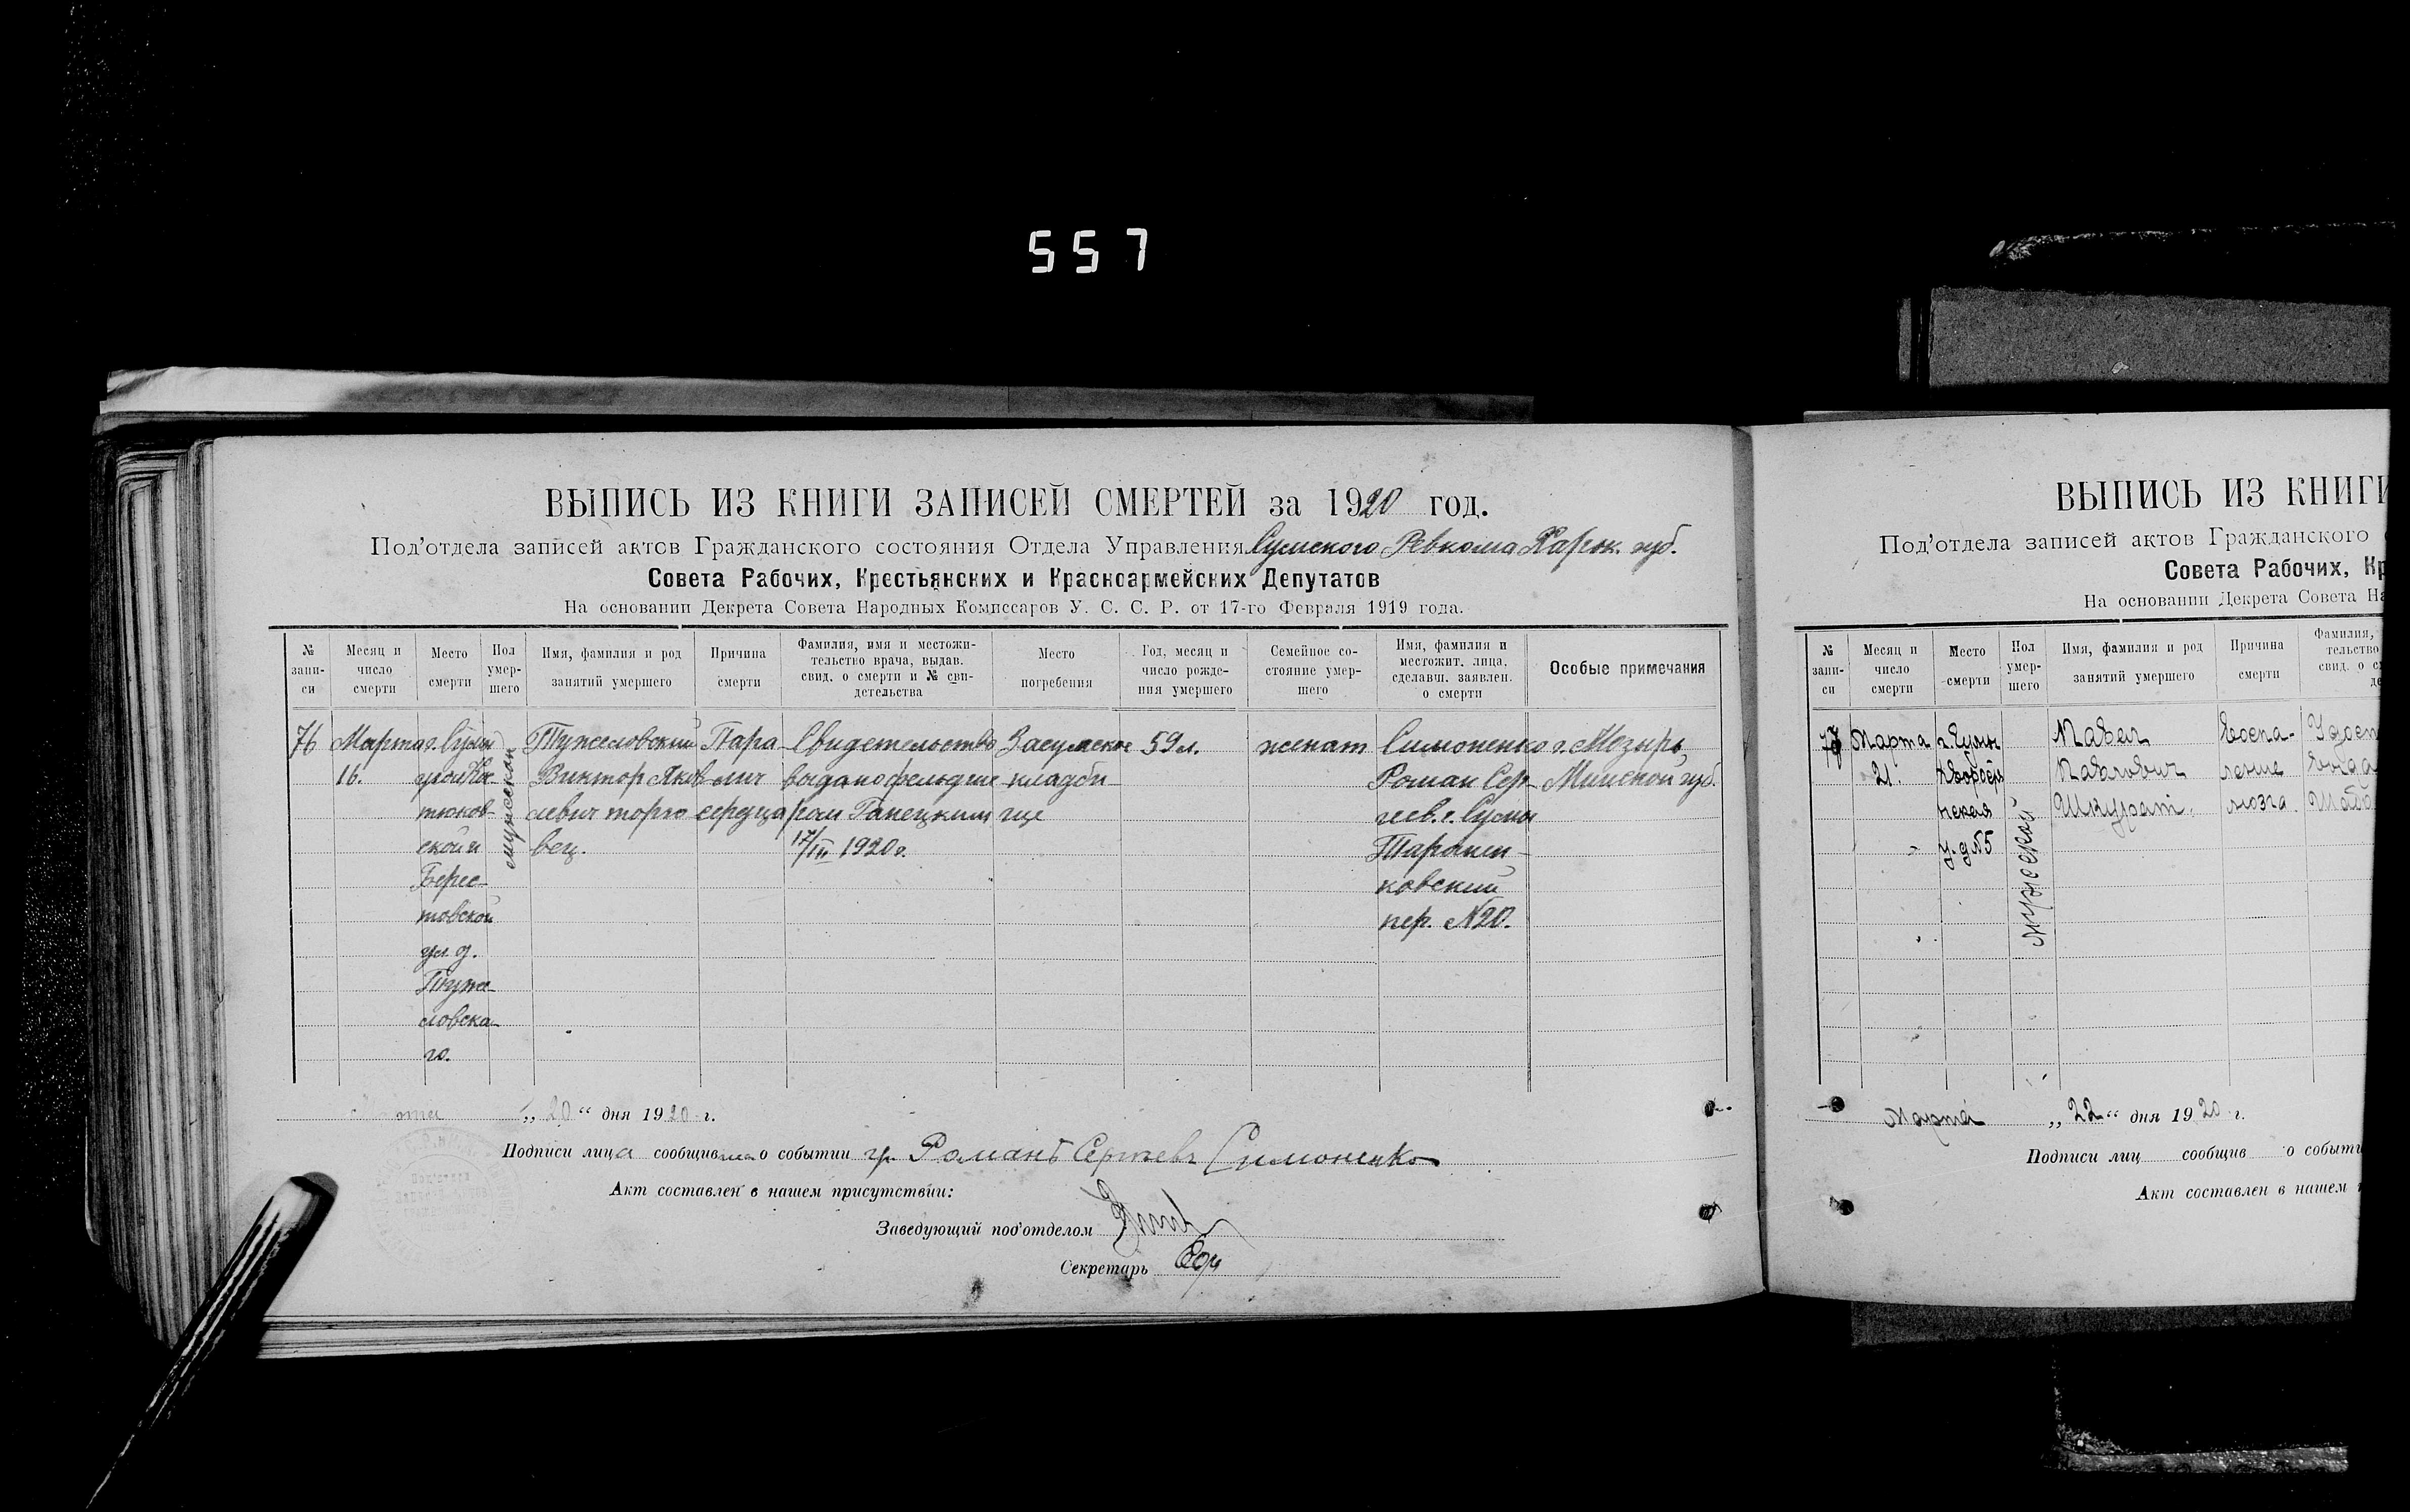 557
ВЫПИСЬ ИЗ КНИГИ ЗАПИСЕЙ СМЕРТЕЙ за 1920 год.
Под'отдела записей актов Гражданского состояния Отдела Управления Сумского Ревкома Харьк. губ.
Совета Рабочих, Крестьянских и Красноармейских Депутатов
На основании Декрета Совета Народных Комиссаров У. С. С. Р. от 17-го Февраля 1919 года.
№ запи-
си
Месяц и
число
смерти
Место
смерти
Пол
умер-
шего
Имя, фамилия и род
занятий умершего
Причина
смерти
Фамилия, имя и местожи-
тельство врача, выдав.
свид. о смерти и № сви-
детельства
Место
погребения
Год, месяц и
число рожде-
ния умершего
Семейное со-
стояние умер-
шего
Имя, фамилия и
местожит. лица,
сделавш. заявлен.
о смерти
Особые примечания
76
Марта
16.
г. Сумы
тюков-
ской и
Берес-
товской
ул. д.
Тужи-
ловска-
го.
мужской
Виктор Яков
левич торго
вец.
Пара-
лич
сердца
Свидетельство
выдано фельдше
ром Ганецким
17/III 1920 г.
Засумское
кладби-
ще
59 л.
женат
Симоненко
Роман Сер-
геев. г. Сумы
ковский
пер. №20.
г. Мозырь,
Минской губ.
„ 20 “ дня 1920 г.
Подписи лица сообщив о событии гр. Романъ Сергѣевъ Симоненко
Акт составлен в нашем присутствии:
Заведующий под'отделом
Секретарь
ВЫПИСЬ ИЗ КНИГИ
Под'отдела записей актов Гражданского
Совета Рабочих, Кр
На основании Декрета Совета На
№
запи-
си
Месяц и
число
смерти
Место
смерти
Пол
умер-
шего
Имя, фамилия и род
занятий умершего
Причина
смерти
Фамилия,
тельство
свид. о с
де
77
Марта
21.
г. Сумы
нская
у. д №5
мужской
Павел
Павлович
Шкурат.
Воспа-
ление
мозга.
Удост
Марта „ 22 “ дня 1920 г.
Подписи лиц сообщив о событи
Акт составлен в нашем